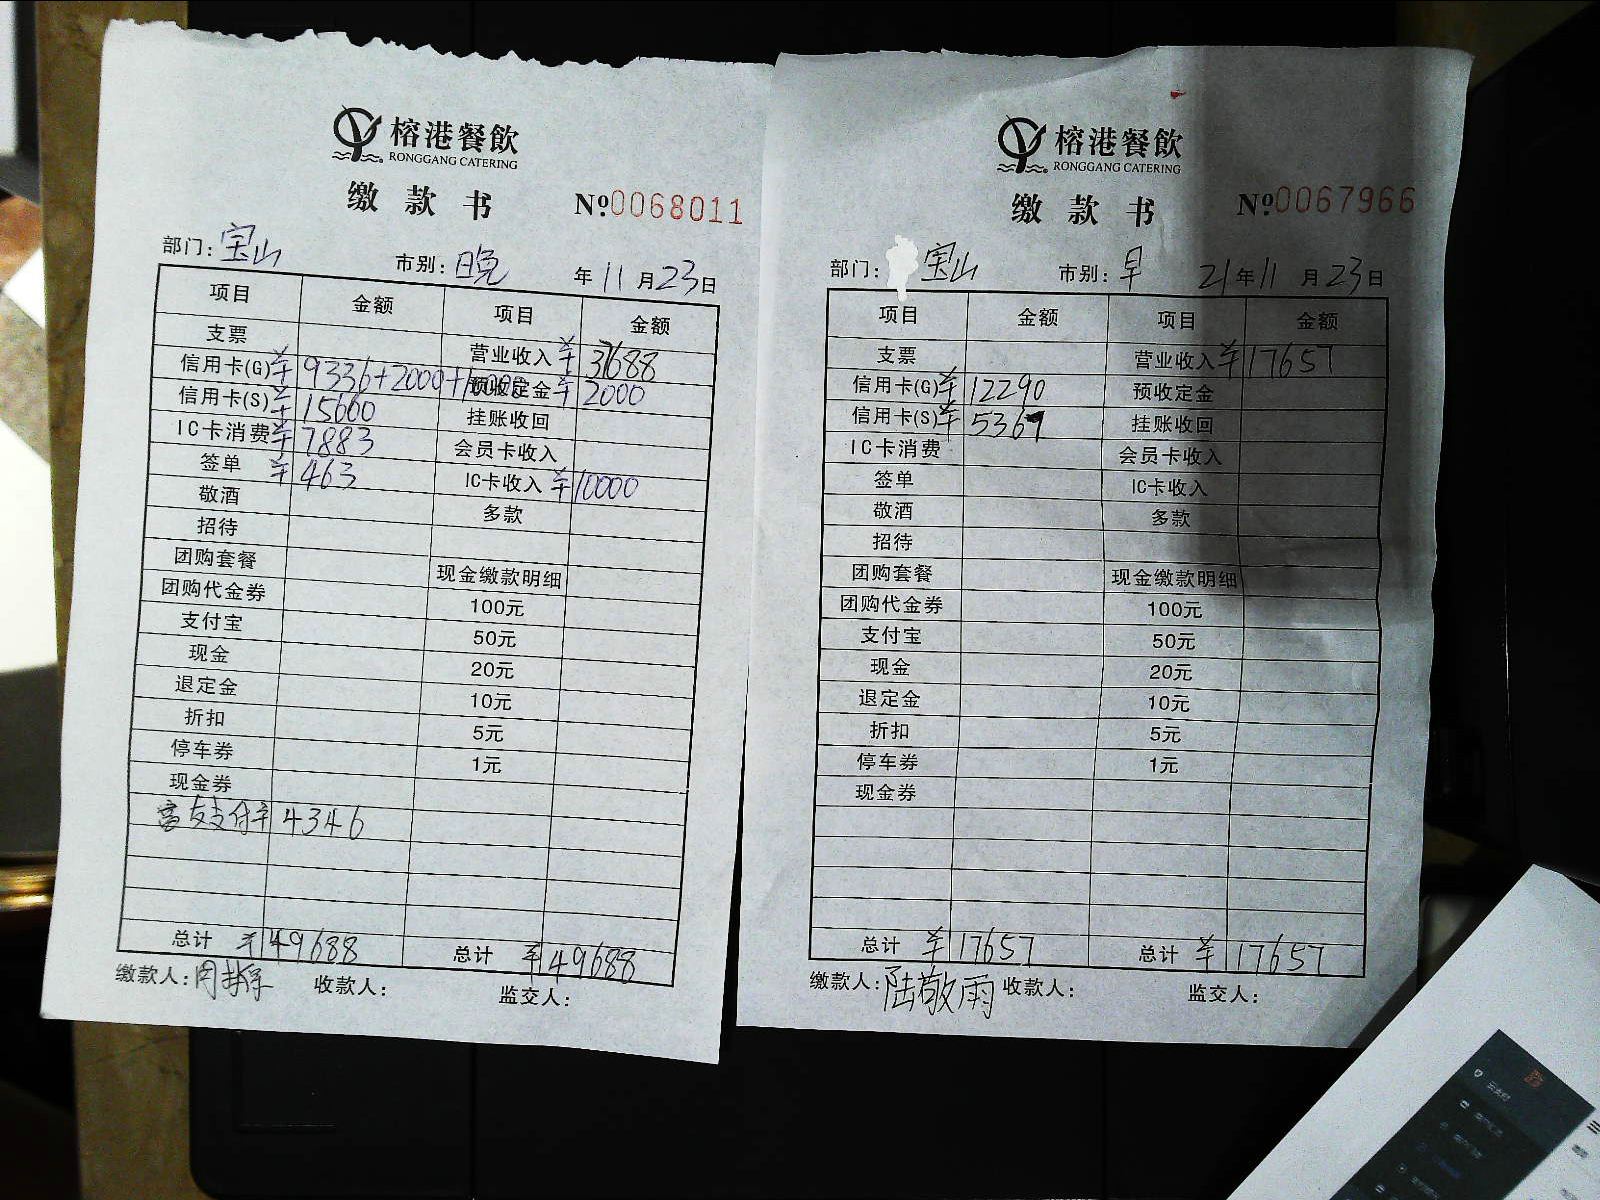 榕港餐飲
RONGGANG CATERING
缴款书 №0068011
部门:宝山 市别:晚 年11月23日
项目 金额 项目 金额
支票 营业收入 ¥37688
信用卡(G) ¥9336+2000+10000 预收定金 ¥2000
信用卡(S) ¥15660 挂账收回
IC卡消费 ¥7883 会员卡收入
签单 ¥463 IC卡收入 ¥10000
敬酒 多款
招待
团购套餐 现金缴款明细
团购代金券 100元
支付宝 50元
现金 20元
退定金 10元
折扣 5元
停车券 1元
现金券
富友支付 ¥4346
总计 ¥49688 总计 ¥49688
缴款人: 收款人: 监交人:
榕港餐飲
RONGGANG CATERING
缴款书 №0067966
部门:宝山 市别:早 21年11月23日
项目 金额 项目 金额
支票 营业收入 ¥17657
信用卡(G) ¥12290 预收定金
信用卡(S) ¥5367 挂账收回
IC卡消费 会员卡收入
签单 IC卡收入
敬酒 多款
招待
团购套餐 现金缴款明细
团购代金券 100元
支付宝 50元
现金 20元
退定金 10元
折扣 5元
停车券 1元
现金券
总计 ¥17657 总计 ¥17657
缴款人:陆敬雨 收款人: 监交人: